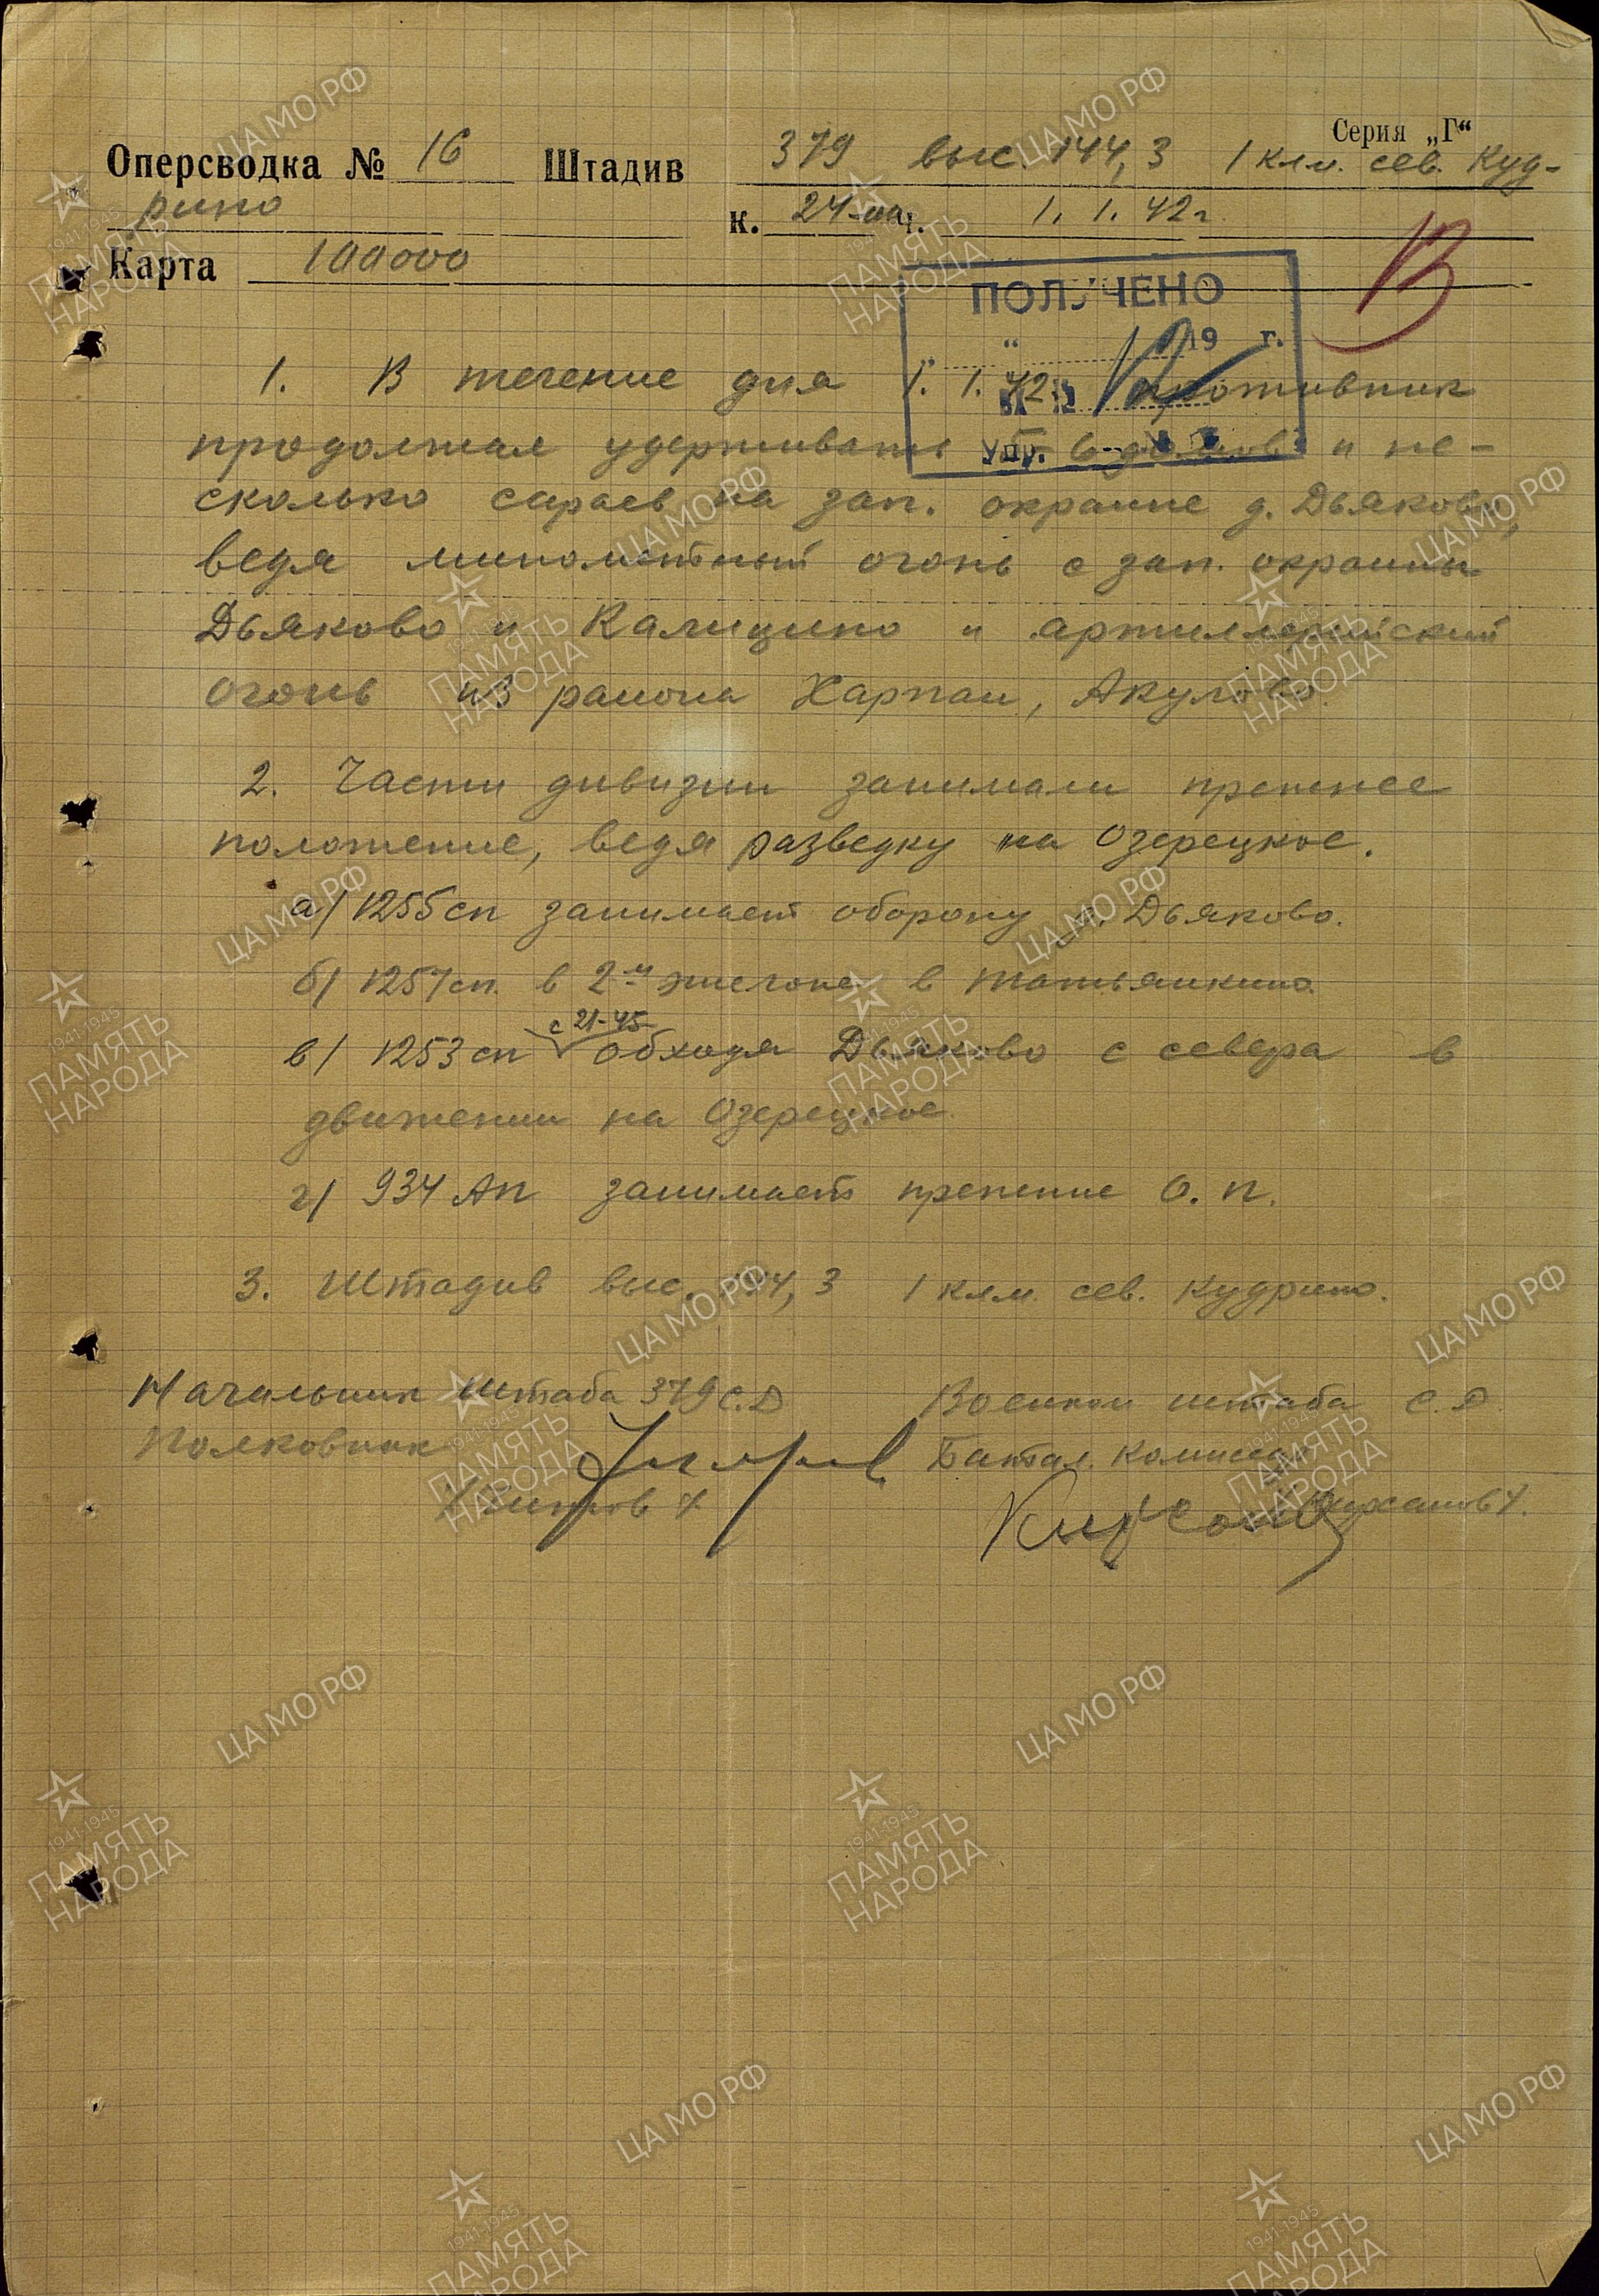 Серия „Г“
Оперсводка № 16 Штадив 379 выс. 144,3 1 клм. сев. Куд-
рино к. 24-00 ч. 1. 1. 42 г.
Карта 100000
ПОЛУЧЕНО
" " 19 г.
Упр.
1. В течение дня 1. 1. 42 г. противник
продолжал удерживать 5-6 домов и не-
сколько сараев на зап. окраине д. Дьяково,
ведя минометный огонь с зап. окраины
Дьяково и Калицино и артиллерийский
огонь из района Харлам, Акулово.
2. Части дивизии занимали прежнее
положение, ведя разведку на Озерецкое.
а/ 1255 сп занимает оборону д. Дьяково.
б/ 1257 сп. в 2-м эшелоне в Татьянкино.
с 21-45
в/ 1253 сп обходя Дьяково с севера в
движении на Озерецкое.
г/ 934 АП занимает прежние О. П.
3. Штадив выс. 144,3 1 клм. сев. Кудрино.
Начальник штаба 379 С.Д Военком штаба С.Д.
Полковник Батал. Комиссар
/Кирсанов/.
ЦА МО РФ
1941-1945
ПАМЯТЬ
НАРОДА